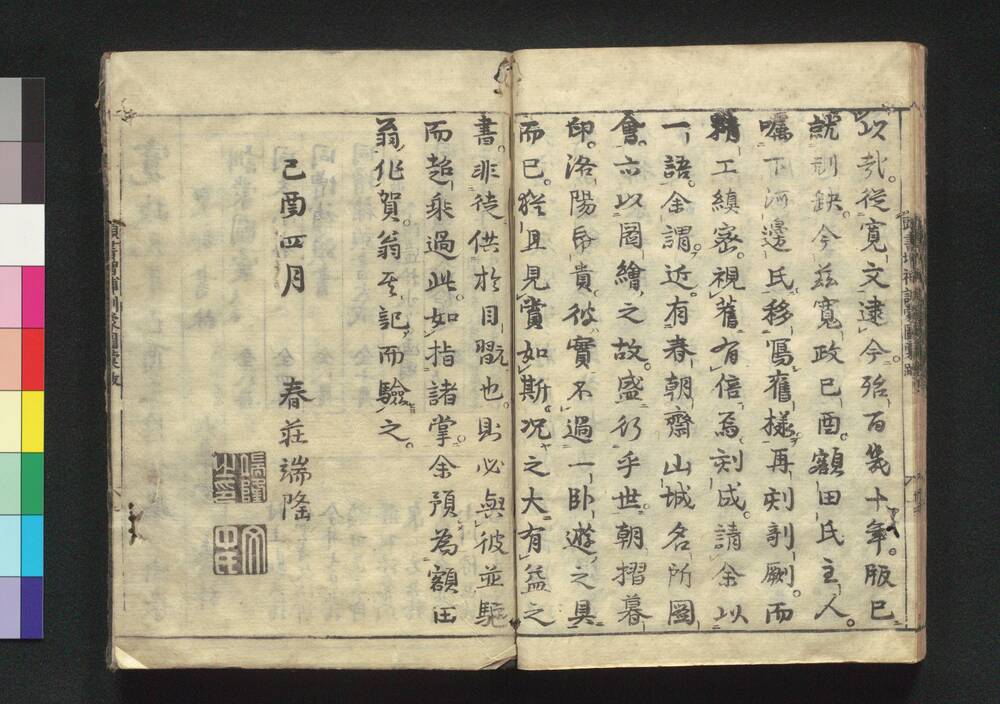 以哉。從寛文逮今。殆百幾十年。版已
就刓缺。今玆寛政已酉。額田氏主人。
嘱下河邊氏。移寫舊様。再刻剞劂。而
精工縝密。視舊有倍焉。刻成。請余以
一語。余謂。近有春朝齋山城名所圖
會。亦以圖繪之故。盛行乎世。朝摺暮
印。洛陽帋貴。彼實不過一臥遊之具
而已。猶且見賞如斯。况之大有益之
書。非徒供於目翫也。則必與彼並駈
而超乘過此。如指諸掌。余預為額田
翁作賀。翁其記而驗之。
己酉四月　春莊端隆